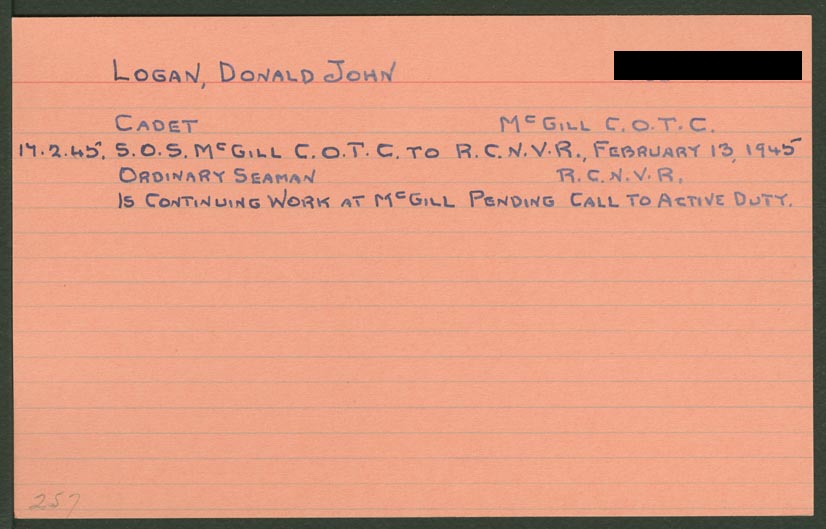 LOGAN, DONALD JOHN
CADET McGILL C.O.T.C.
17.2.45. S.O.S. McGILL C.O.T.C. TO R.C.N.V.R., FEBRUARY 13, 1945
ORDINARY SEAMAN R.C.N.V.R.
IS CONTINUING WORK AT McGILL PENDING CALL TO ACTIVE DUTY.
257